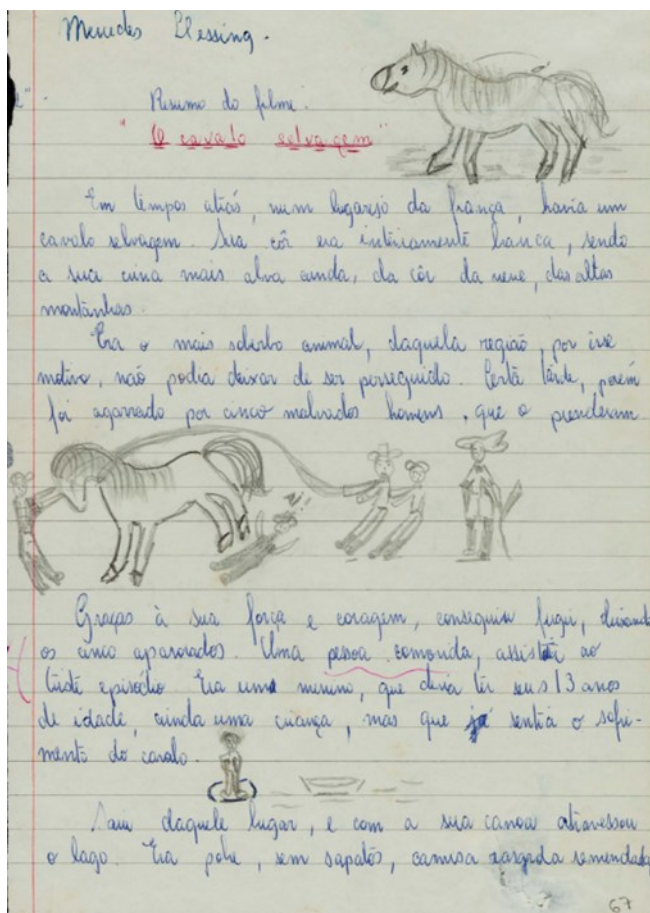 Mercedes Blessing.
Resumo do filme.
"O cavalo selvagem"
Em tempos atrás, num lugarejo da frança, havia um
cavalo selvagem. Sua côr era inteiramente branca, sendo
a sua crina mais alva ainda, da côr da neve, das altas
montanhas.
Era o mais soberbo animal, daquela região, por isse
motivo, não podia deixar de ser perseguido. Certa tarde, porém
foi agarrado por cinco malvados homens, que o prenderam
ai!
Graças à sua força e coragem, conseguiu fugir, deixando
os cinco apavorados. Uma pessoa comovida, assistiu ao
triste episódio Era um menino, que devia ter seus 13 anos
de idade, ainda uma criança, mas que já sentia o sofri-
mento do cavalo.
Saiu daquele lugar, e com a sua canoa atravessou
o lago. Era pobre, sem sapatos, camisa rasgada remendada
67